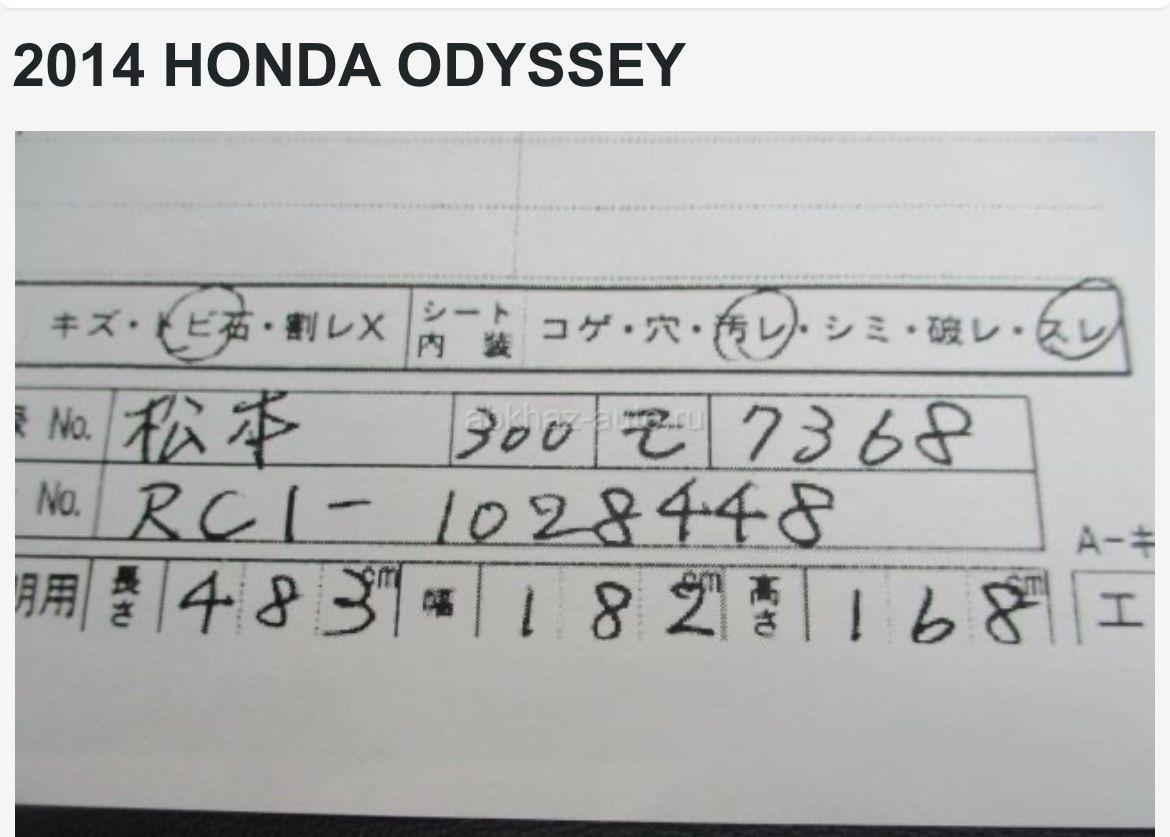 2014 HONDA ODYSSEY
キズ・トビ石・割レX シート内装 コゲ・穴・汚レ・シミ・破レ・スレ
No. 松本 300 モ 7368
abkhaz-auto.ru
No. RC1-1028448
A-キ
明用 長さ 483cm 幅 182cm 高さ 168cm エ